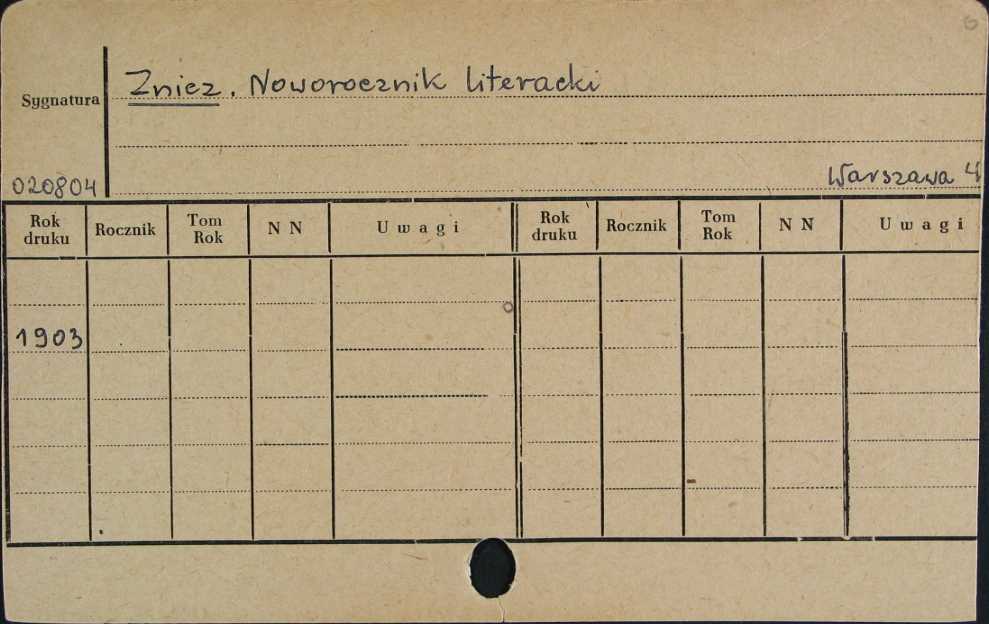 6
Zniez. Noworocznik literacki
Sygnatura
020804
Warszawa 4
Rok druku Rocznik Tom Rok N N Uwagi Rok druku Rocznik Tom Rok N N Uwagi
1903